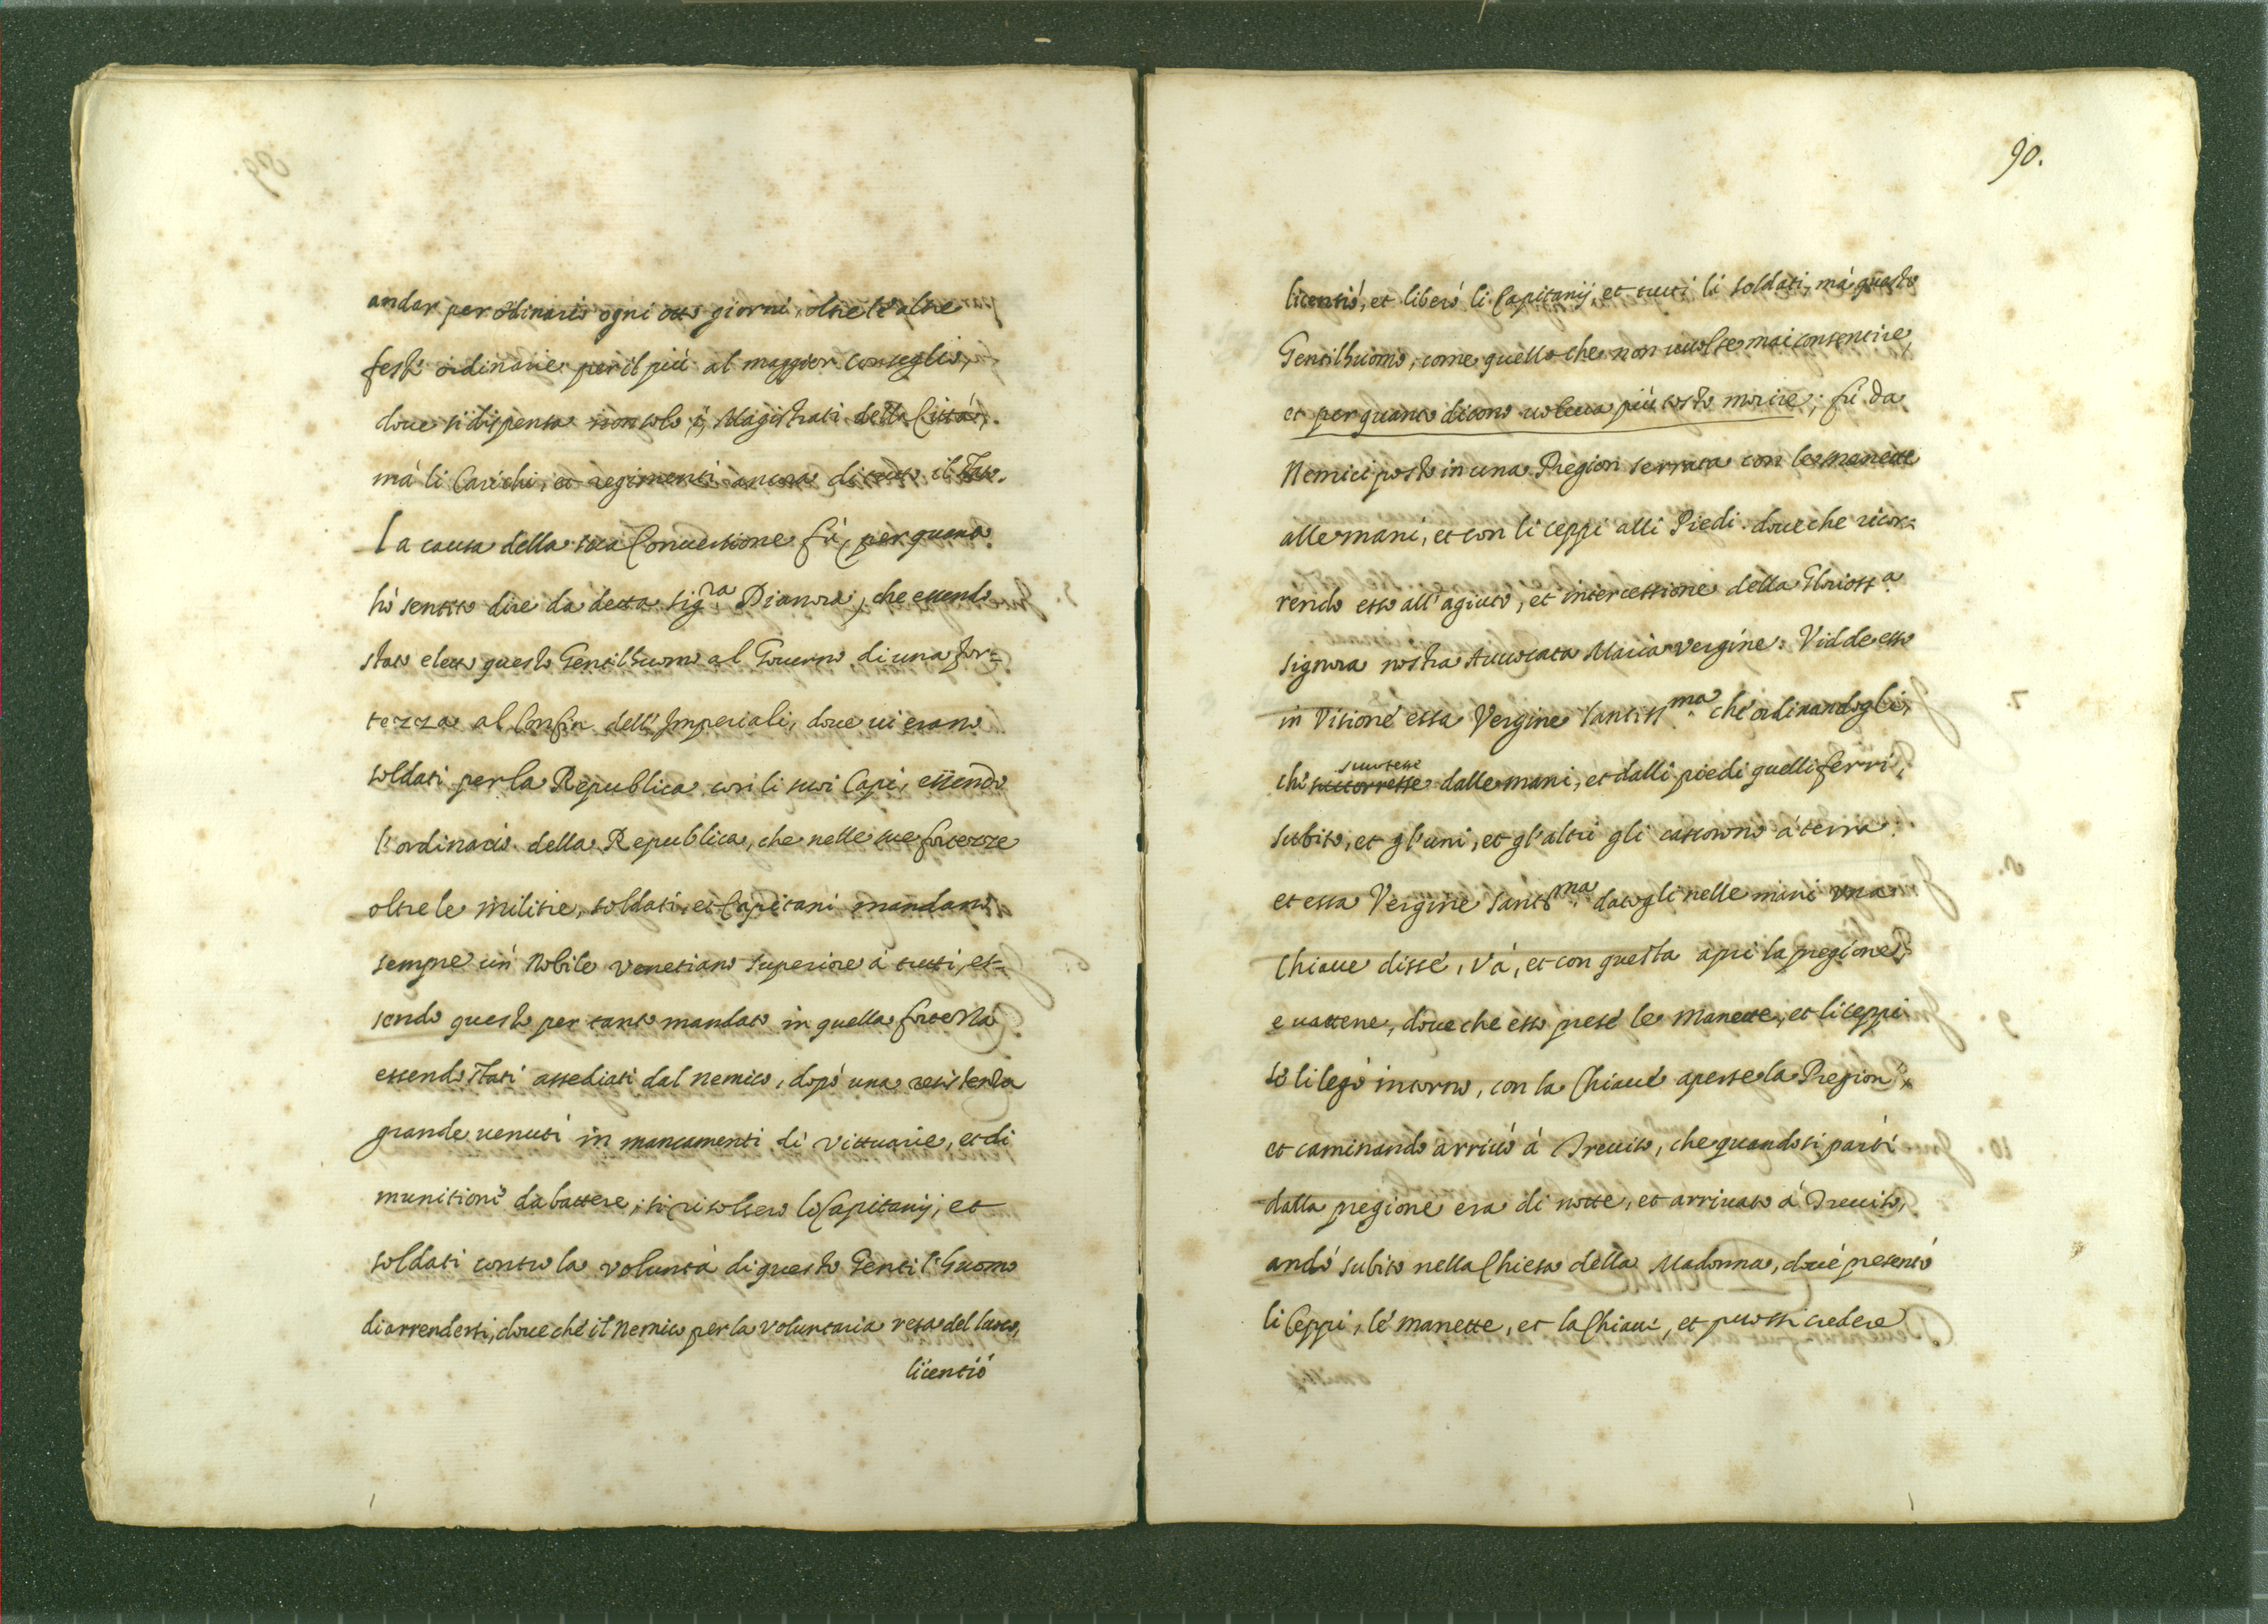 andar per ordinario ogni otto giorni, oltre l'altre
feste ordinarie per il più al maggior Conseglio,
doue si dispensa non solo i Magistrati della Città,
mà li Carichi, et regimenti ancora di tutto il Stato.
La causa della sua Conuersione fù, per quanto
hò sentito dire da detta Sig.ra Dianora, che essendo
stato eletto questo Gentilhuomo al Gouerno di una for=
tezza al Confin dell'Imperiali, doue ui erano
soldati per la Republica con li suoi Capi, essendo
l'ordinario della Republica, che nelle sue fortezze
oltre le militie, soldati, et Capitani mandano
sempre un Nobile Venetiano superiore à tutti, es=
sendo questo per tanto mandato in quella fortezza
essendo stati assediati dal nemico, dopò una resistenza
grande uenuti in mancamenti di vittuarie, et di
munitioni da battere, si risolsero li Capitanij, et
soldati contro la voluntà di questo Gentil'huomo
di arrendersi, doue che il Nemico per la voluntaria resa del luoco,
licentiò
90.
licentiò, et liberò li Capitanij, et tutti li soldati, mà questo
Gentilhuomo, come quello che non uuolse mai consentire,
et per quanto dicono uoleua più tosto morire, fù da
Nemici posto in una Pregion serrata con le manette
alle mani, et con li ceppi alli Piedi. doue che ricor=
rendo esso all'agiuto, et intercessione della Glorioss.a
Signora nostra Auuocata Maria Vergine. Vidde esso
in Visione essa Vergine Santiss.ma che ordinandogli,
che scuotesse dalle mani, et dalli piedi quelli ferri,
subito, et gl'uni, et gl'altri gli cascorno à terra.
et essa Vergine Sant.ma datogli nelle mani una
Chiaue disse, Và, et con questa apri la pregione,
e uattene, doue che esso prese le manette, et li ceppi
se li legò intorno, con la Chiaue aperse la Pregion
et caminando arriuò à Treuiso, che quando si partì
dalla pregione era di notte, et arriuato à Treuiso,
andò subito nella Chiesa della Madonna, doue presentò
li Ceppi, le manette, et la Chiaue, et puossi credere